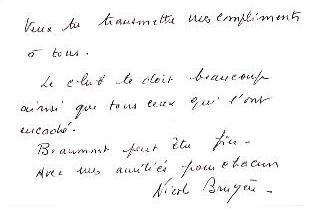 Veux tu transmettre mes compliments
à tous.
Le club te doit beaucoup
ainsi que tous ceux qui l'ont
encadré.
Beaumont peut être fier -
Avec mes amitiés pour chacun
Nicole Bruyère -